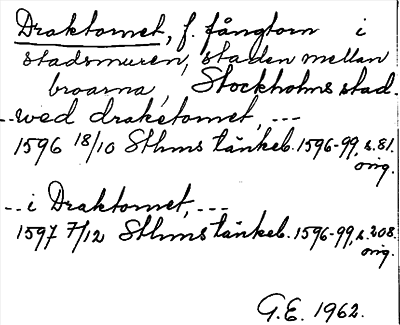 Draktornet, f. fångtorn i
stadsmuren, staden mellan
broarna, Stockholms stad.
--wed draketornet, ---
1596 18/10 Sthms tänkeb. 1596-99, s. 81.
orig.
--i Draktornet, ---
1597 7/12 Sthms tänkeb. 1596-99, s. 208.
orig.
G.E. 1962.